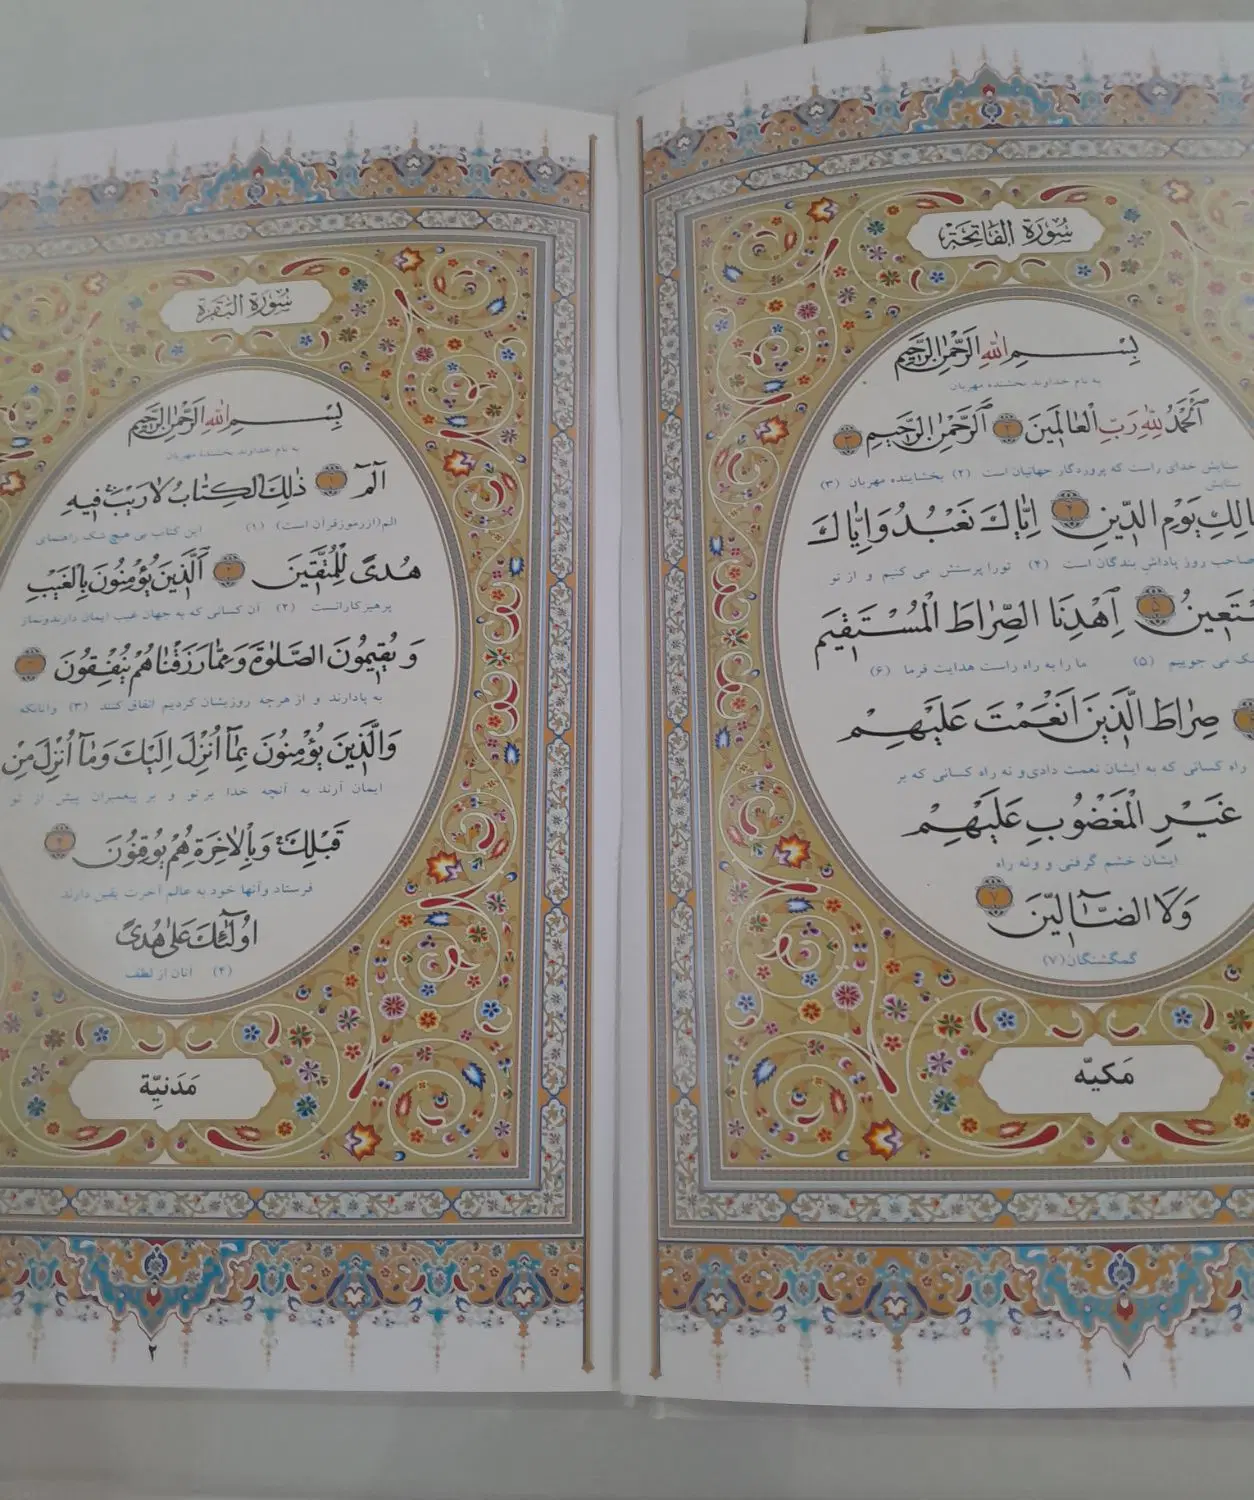 سُورَةُ الفَاتِحَة
بِسْمِ اللّٰهِ الرَّحْمٰنِ الرَّحِيمِ
به نام خداوند بخشنده مهربان
اَلْحَمْدُ لِلّٰهِ رَبِّ الْعَالَمِينَ ﴿٢﴾ اَلرَّحْمٰنِ الرَّحِيمِ ﴿٣﴾
ستایش خدای راست که پروردگار جهانیان است (۲) بخشاینده مهربان (۳)
ستایش
الِكِ يَوْمِ الدّينِ ﴿٤﴾ اِيّٰاكَ نَعْبُدُ وَ اِيّٰاكَ
صاحب روز پاداش بندگان است (۴) تورا پرستش می کنیم و از تو
سْتَعينُ ﴿٥﴾ اِهْدِنَا الصِّرٰاطَ الْمُسْتَقيمَ
ک می جوییم (۵) ما را به راه راست هدایت فرما (۶)
صِرٰاطَ الَّذينَ اَنْعَمْتَ عَلَيْهِمْ
راه کسانی که به ایشان نعمت دادی و نه راه کسانی که بر
غَيْرِ الْمَغْضُوبِ عَلَيْهِمْ
ایشان خشم گرفتی و ونه راه
وَلَا الضّٰٓالّينَ ﴿٧﴾
گمگشتگان (۷)
مَكيّه
١
سُورَةُ البَقَرَة
بِسْمِ اللّٰهِ الرَّحْمٰنِ الرَّحِيمِ
به نام خداوند بخشنده مهربان
الٓمٓ ﴿١﴾ ذٰلِكَ الْكِتٰابُ لٰا رَيْبَ ۛ فيهِ
الم (ازرموزقرآن است) (۱) این کتاب بی هیچ شک راهنمای
هُدىً لِلْمُتَّقينَ ﴿٢﴾ اَلَّذينَ يُؤْمِنُونَ بِالْغَيْبِ
پرهیزکارانست (۲) آن کسانی که به جهان غیب ایمان دارندونماز
وَ يُقيمُونَ الصَّلٰوةَ وَ مِمّٰا رَزَقْنٰاهُمْ يُنْفِقُونَ ﴿٣﴾
به پادارند و از هرچه روزیشان کردیم انفاق کنند (۳) وانانکه
وَالَّذينَ يُؤْمِنُونَ بِمٰٓا اُنْزِلَ اِلَيْكَ وَ مٰٓا اُنْزِلَ مِنْ
ایمان آرند به آنچه خدا برتو و بر پیغمبران پیش از تو
قَبْلِكَ وَ بِالْاٰخِرَةِ هُمْ يُوقِنُونَ ﴿٤﴾
فرستاد وآنها خود به عالم آخرت یقین دارند
اُولٰٓئِكَ عَلىٰ هُدىً
(۴) آنان از لطف
مَدَنيَّة
٢